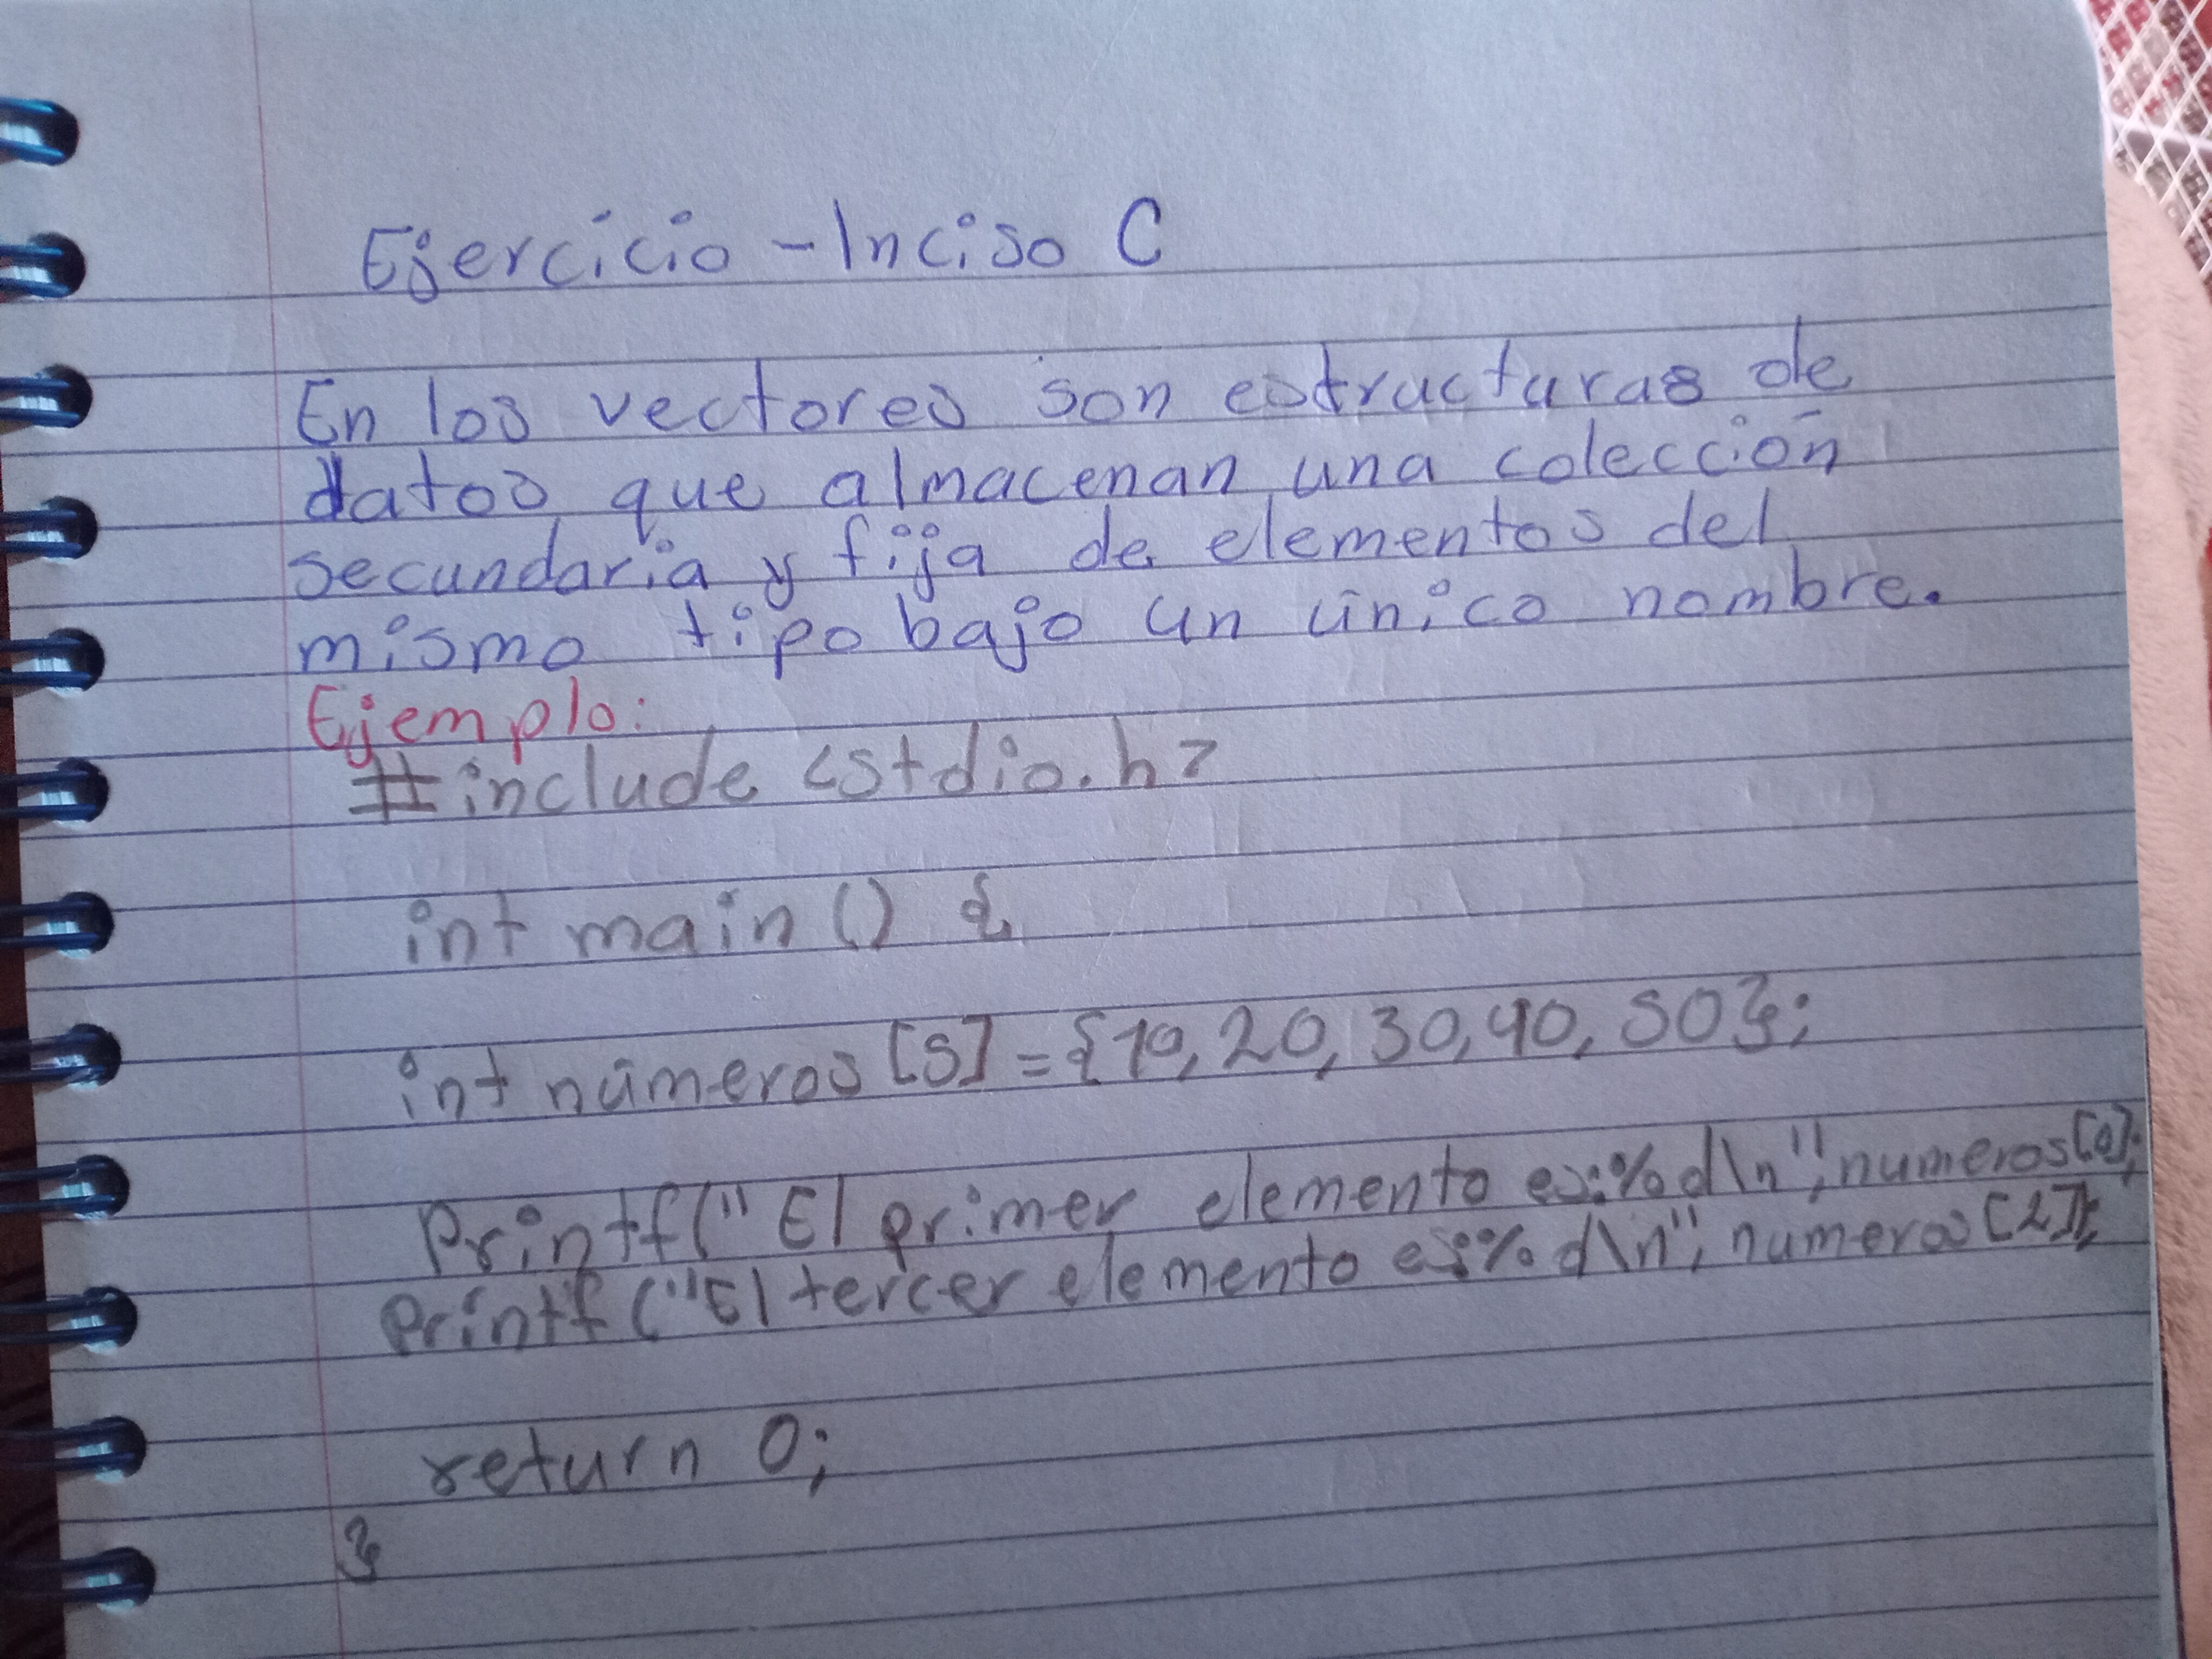 Ejercicio - Inciso C
En los vectores son estructuras de
datos que almacenan una colección
secundaria y fija de elementos del
mismo tipo bajo un único nombre.
Ejemplo:
#include <stdio.h>
int main () {
int números [5] = {10, 20, 30, 40, 50};
Printf (" El primer elemento es:%d\n", numeros[0];
Printf ("El tercer elemento es:%d\n", numeros [2]);
return 0;
}